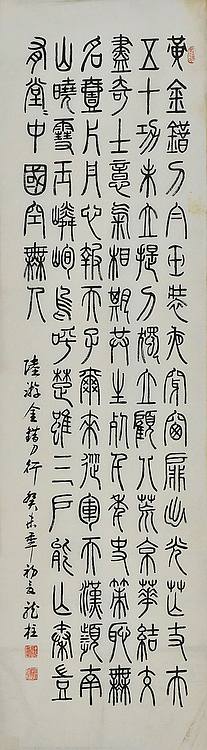 黃金錯刀白玉裝夜穿窗扉出光芒丈夫
五十功未立提刀獨立顧八荒京華結交
盡奇士意氣相期共生死千年史策恥無
名壹片丹心報天子爾來從軍天漢瀕南
山曉雪玉嶙峋烏呼楚雖三戶能亡秦豈
有堂〻中國空無人
陸游金錯刀行 癸未年初夏龙柱